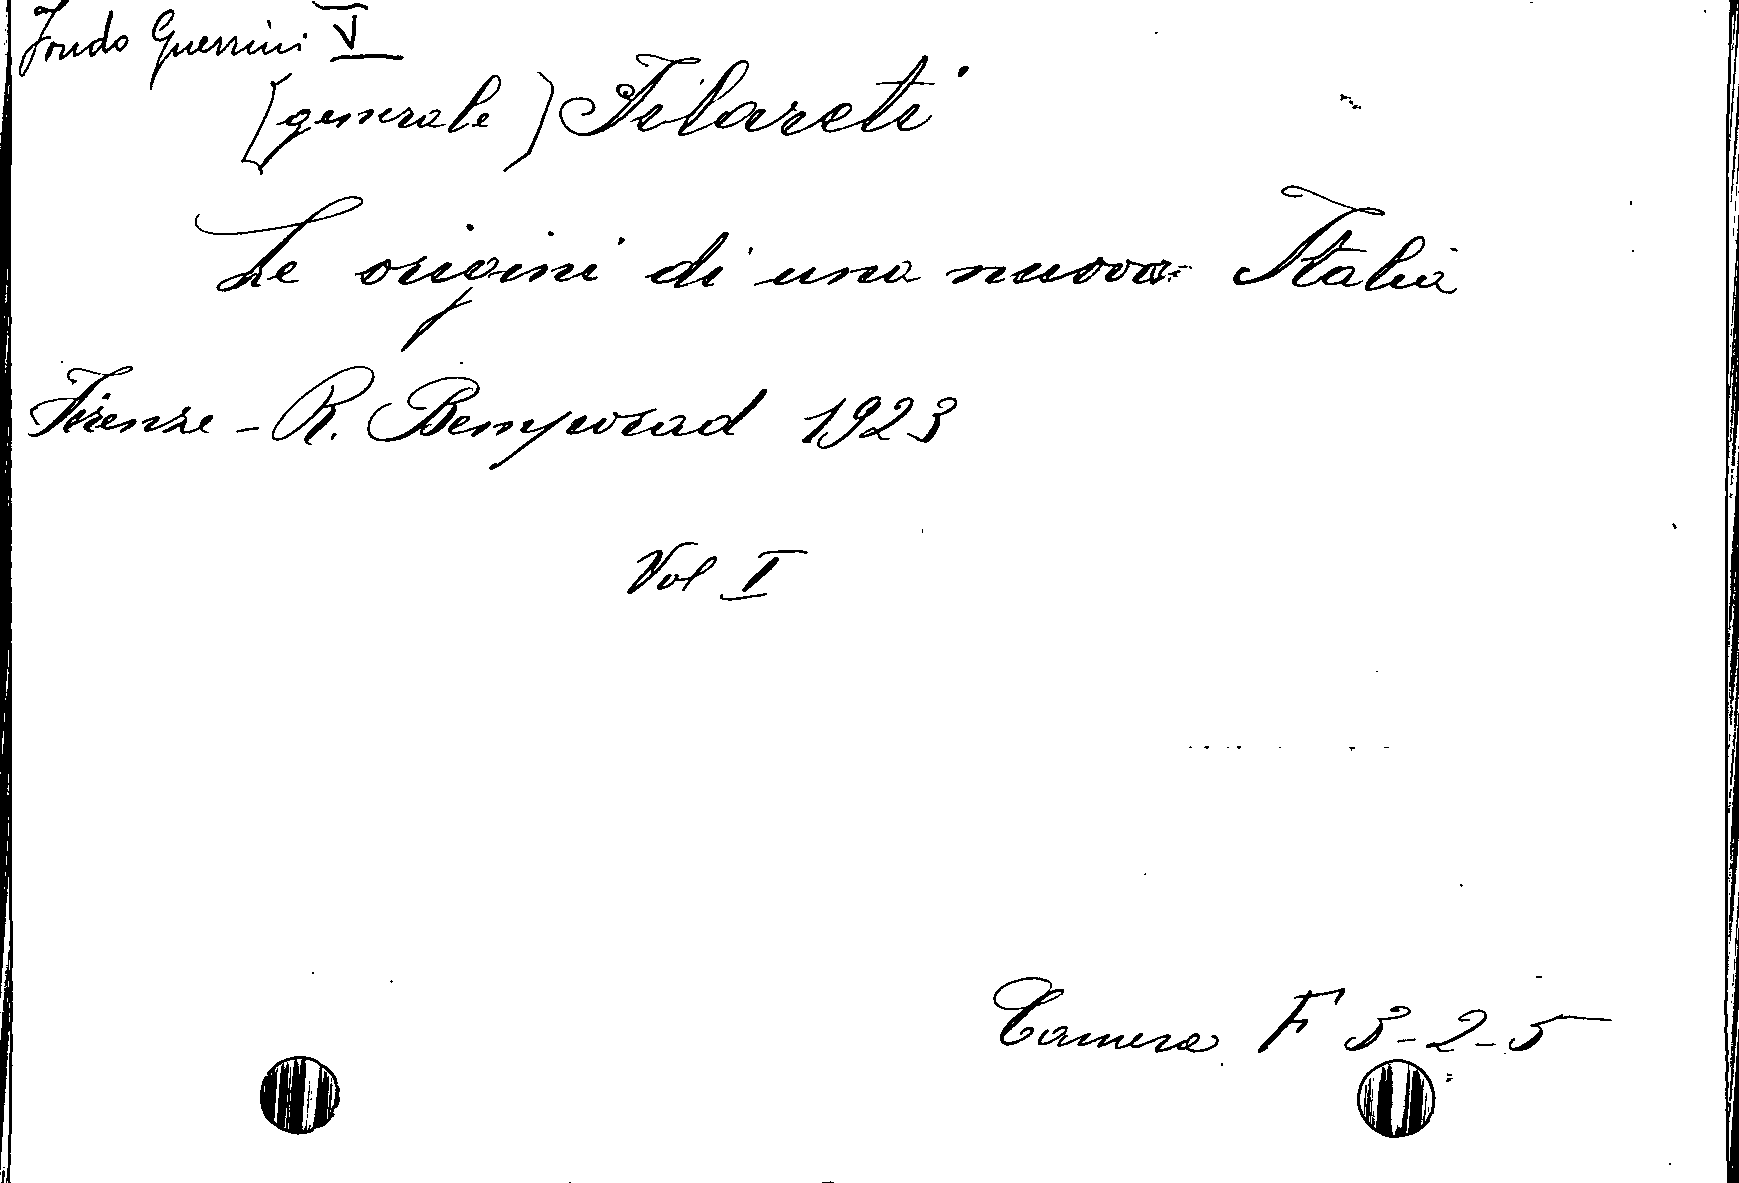 Fondo Guerrini V
(generale) Filareti
Le origini di una nuova Italia
Firenze - R. Bemporad 1923
Vol I
Camera F 3-2-5